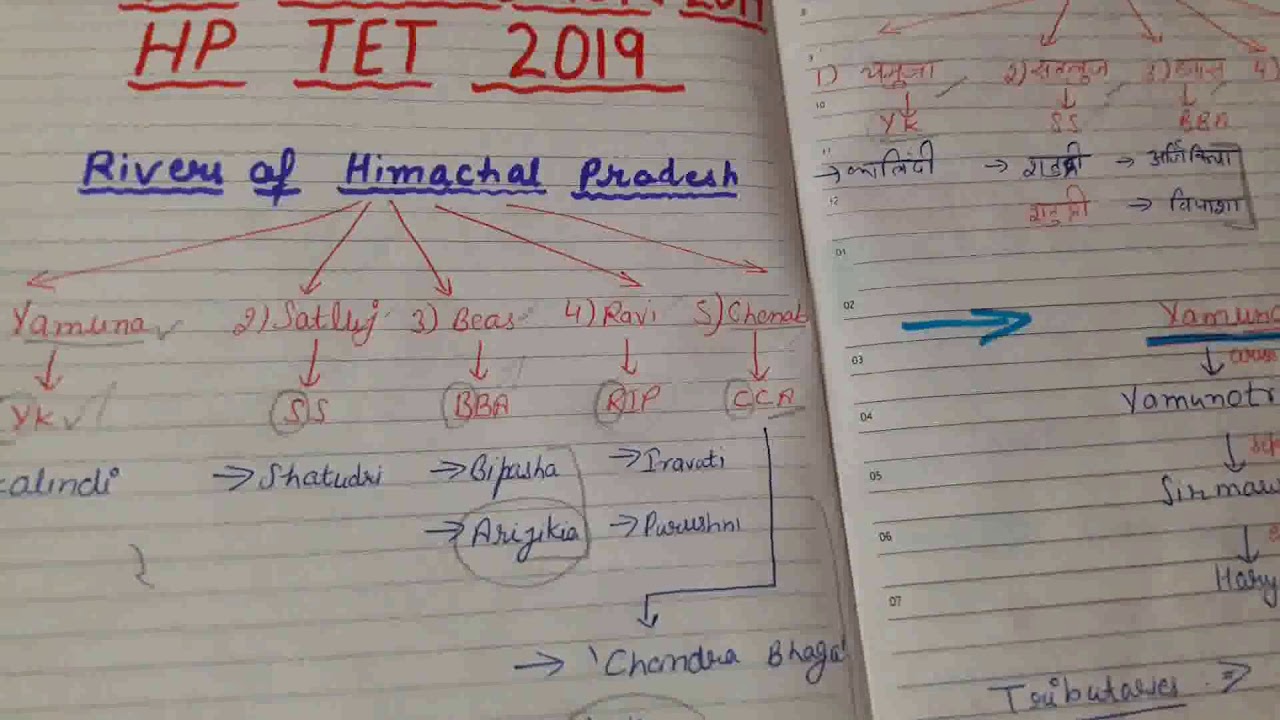 HP TET 2019
Rivers of Himachal Pradesh
Yamuna 2) Satluj 3) Beas 4) Ravi 5) Chenab
YK SS BBA RIP CCA
Kalindi → Shatudri → Bipasha → Iravati
→ Arijikia → Purushni
→ Chandra Bhaga
1) यमुना 2) सतलुज 3) ब्यास 4)
YK SS BBA
→ कालिंदी → शतुद्री → अर्जिकिया
शतुद्री → विपाशा
Yamuna
Yamunotr
Sirmau
Hary
Tributaries ⇒
10
11
12
01
02
03
04
05
06
07